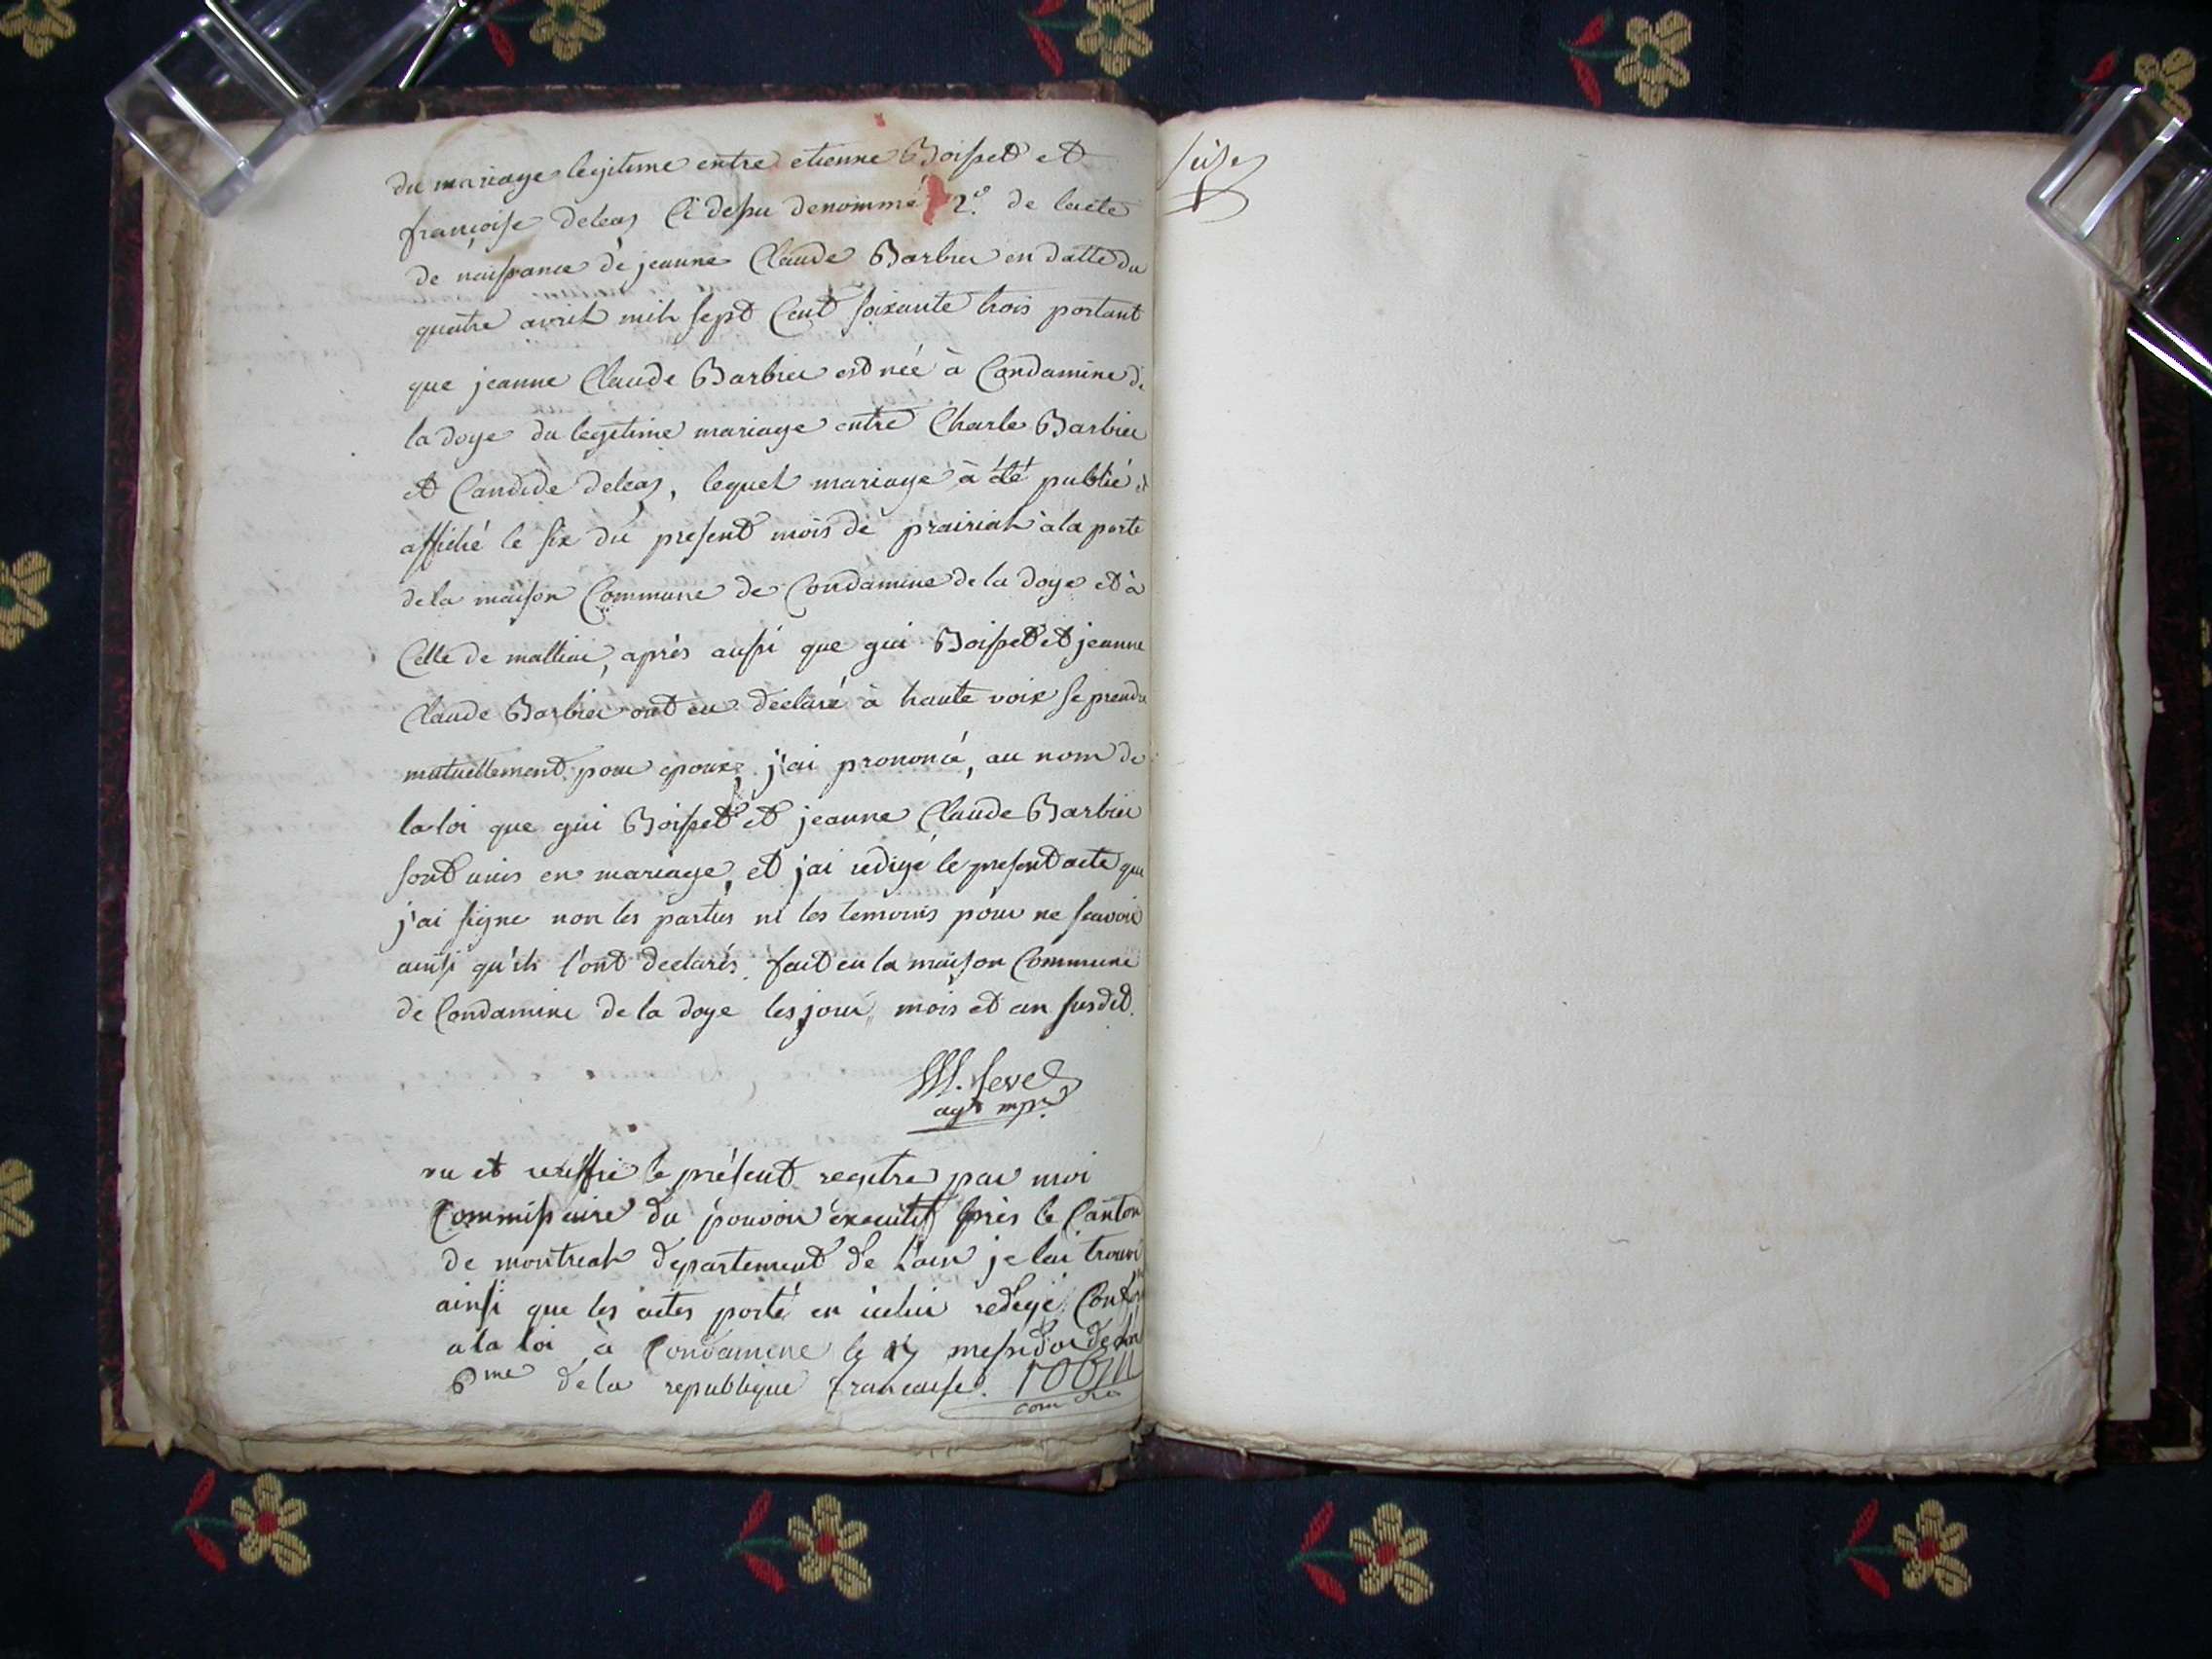 du mariage legitime entre etienne Boisset et
françoise deleas Ci dessu denommé 2.° de lacte
de naissance de jeanne Claude Barbier en datte du
quatre avril mil sept Cent soixante trois portant
que jeanne Claude Barbier est née à Condamine de
la doye du legitime mariage entre Charle Barbier
et Candide deleas, lequel mariage à été publié et
affiché le six du present mois de prairial à la porte
de la maison Commune de Condamine de la doye et à
Celle de , après aussi que gui Boisset et jeanne
Claude Barbier ont eu déclaré à haute voix se prendre
mutuellement pour epoux, j'ai prononcé, au nom de
la loi que gui Boisset et jeanne Claude Barbier
sont unis en mariage, et j'ai redigé le present acte que
j'ai signe non les parties ni les temoins pour ne scavoir
ainsi qu'ils l'ont declarés. fait en la maison Commune
de Condamine de la doye les jour, mois et an susdit.
agt mpal
vu et veriffié le présent regitre par moi
Commissaire du pouvoir éxecutif près le Canton
de montreal departement de L'ain je lai trouvé
ainsi que les actes porté en icelui redigé Conforme
a la loi à Condamine le messidor de lan
6me de la republique francaise. robin
com re
seise